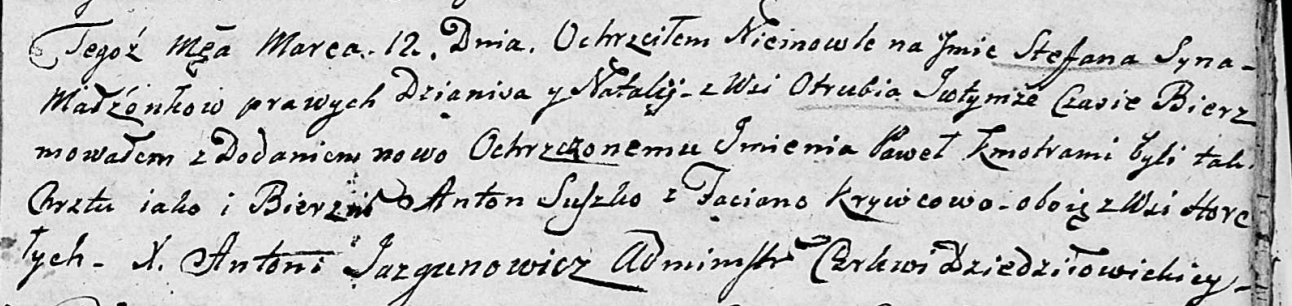 Tegoż Mца Marca. 12. Dnia. Ochrzciłem Niemowle na Jmie Stefana Syna-
Małżonkow prawych Dzianisa y Natalij - z Wsi Otrubia Jwtymże Czasie Bierz
mowałem z Dodaniem nowo Ochrzczonemu Jmienia Paweł Kmotrami byli tak
Chrztu iako i Bierzm Anton Suszko z Taciano Krywcowo - oboię z Wsi Hore
łych - X. Antoni Jazgunowicz Administr Cerkwi Dziedziłowickiey -